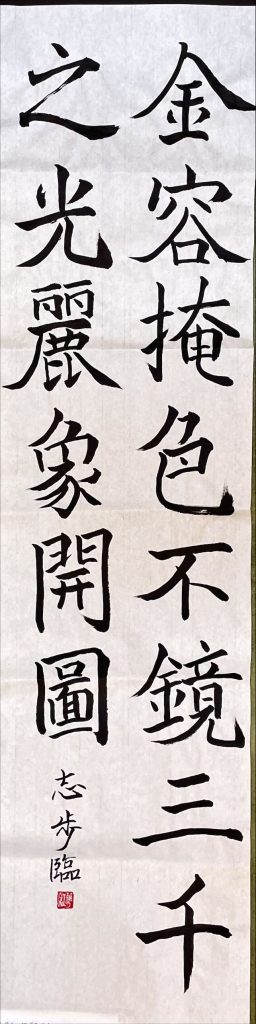 金容掩色不鏡三千
之光麗象開圖
志步臨